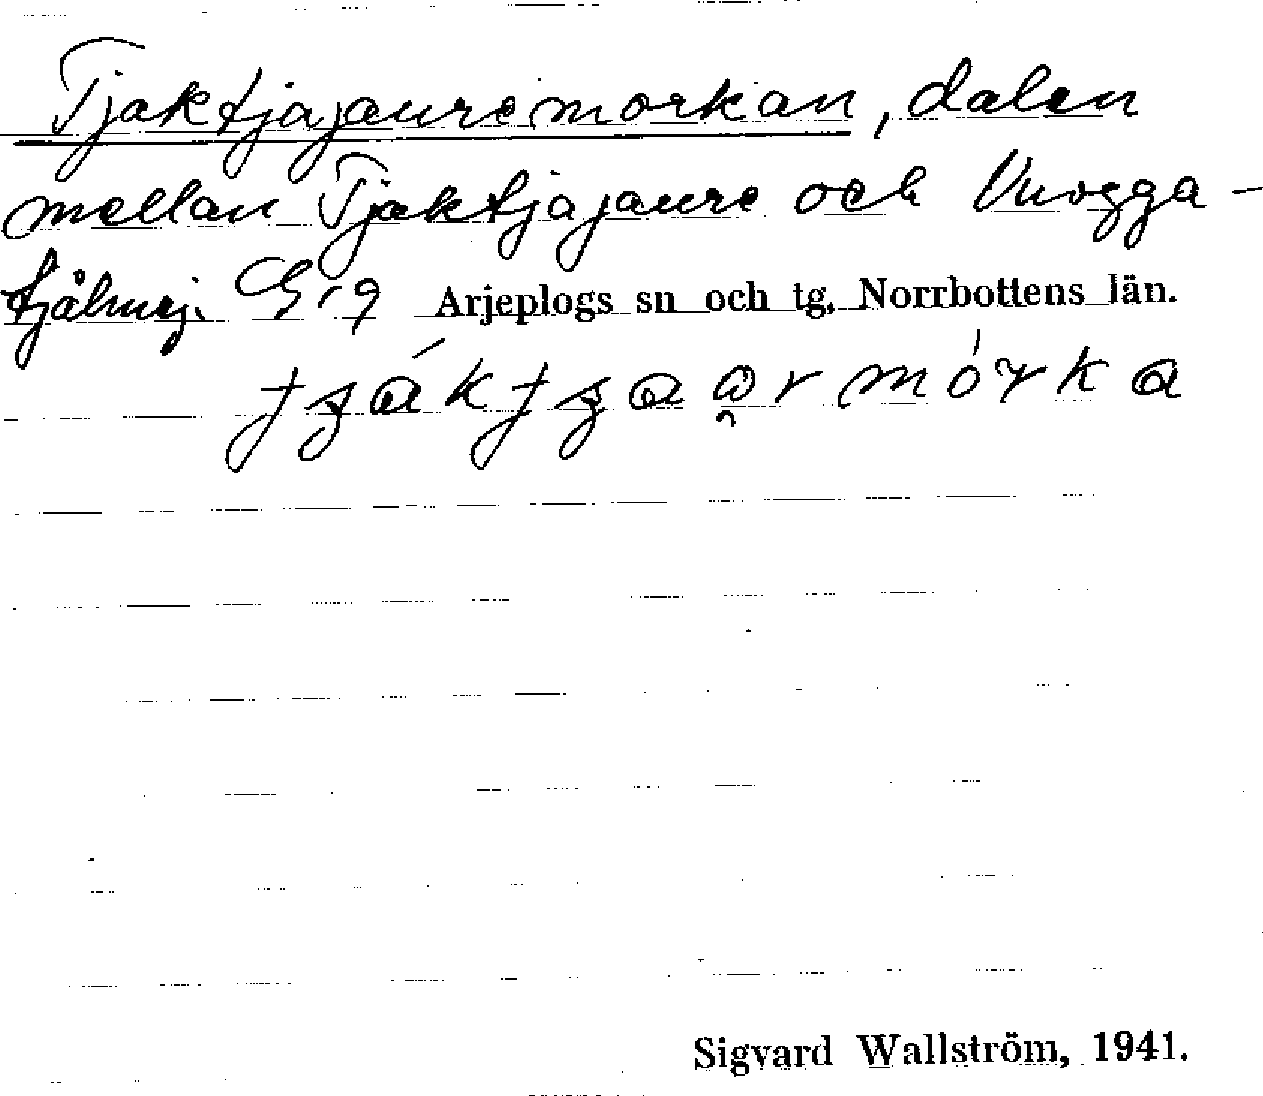 Tjaktjajauremorkan, dalen
mellan Tjaktjajaure och Vuogga-
tjålmej. Arjeplogs sn och tg, Norrbottens län.
Sigvard Wallström, 1941.